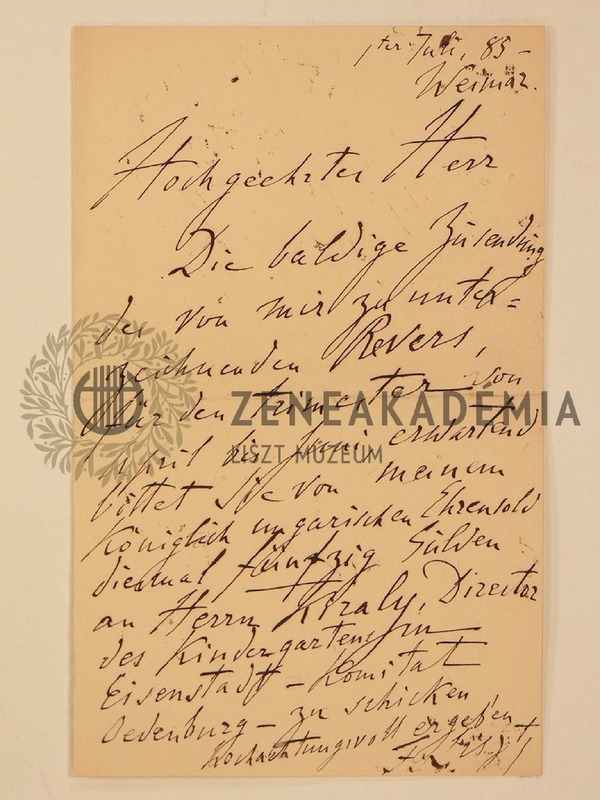 1ter Juli, 85 –
Weimar.
Hochgeehrter Herr
Die baldige Zusendung
des von mir zu unter=
zeichnenden Revers,
für den Trimester von
April bis Juni erwartend
bittet Sie von meinem
Königlich ungarischen Ehrensold
diesmal fünfzig Gulden
an Herrn Kiraly, Director
des Kindergartens in
Eisenstadt – Komitat
Oedenburg – zu schicken
Hochachtungsvoll ergebenst
F. Liszt
ZENEAKADÉMIA
LISZT MÚZEUM